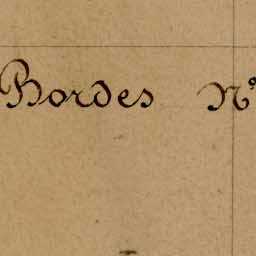 Bordes N°